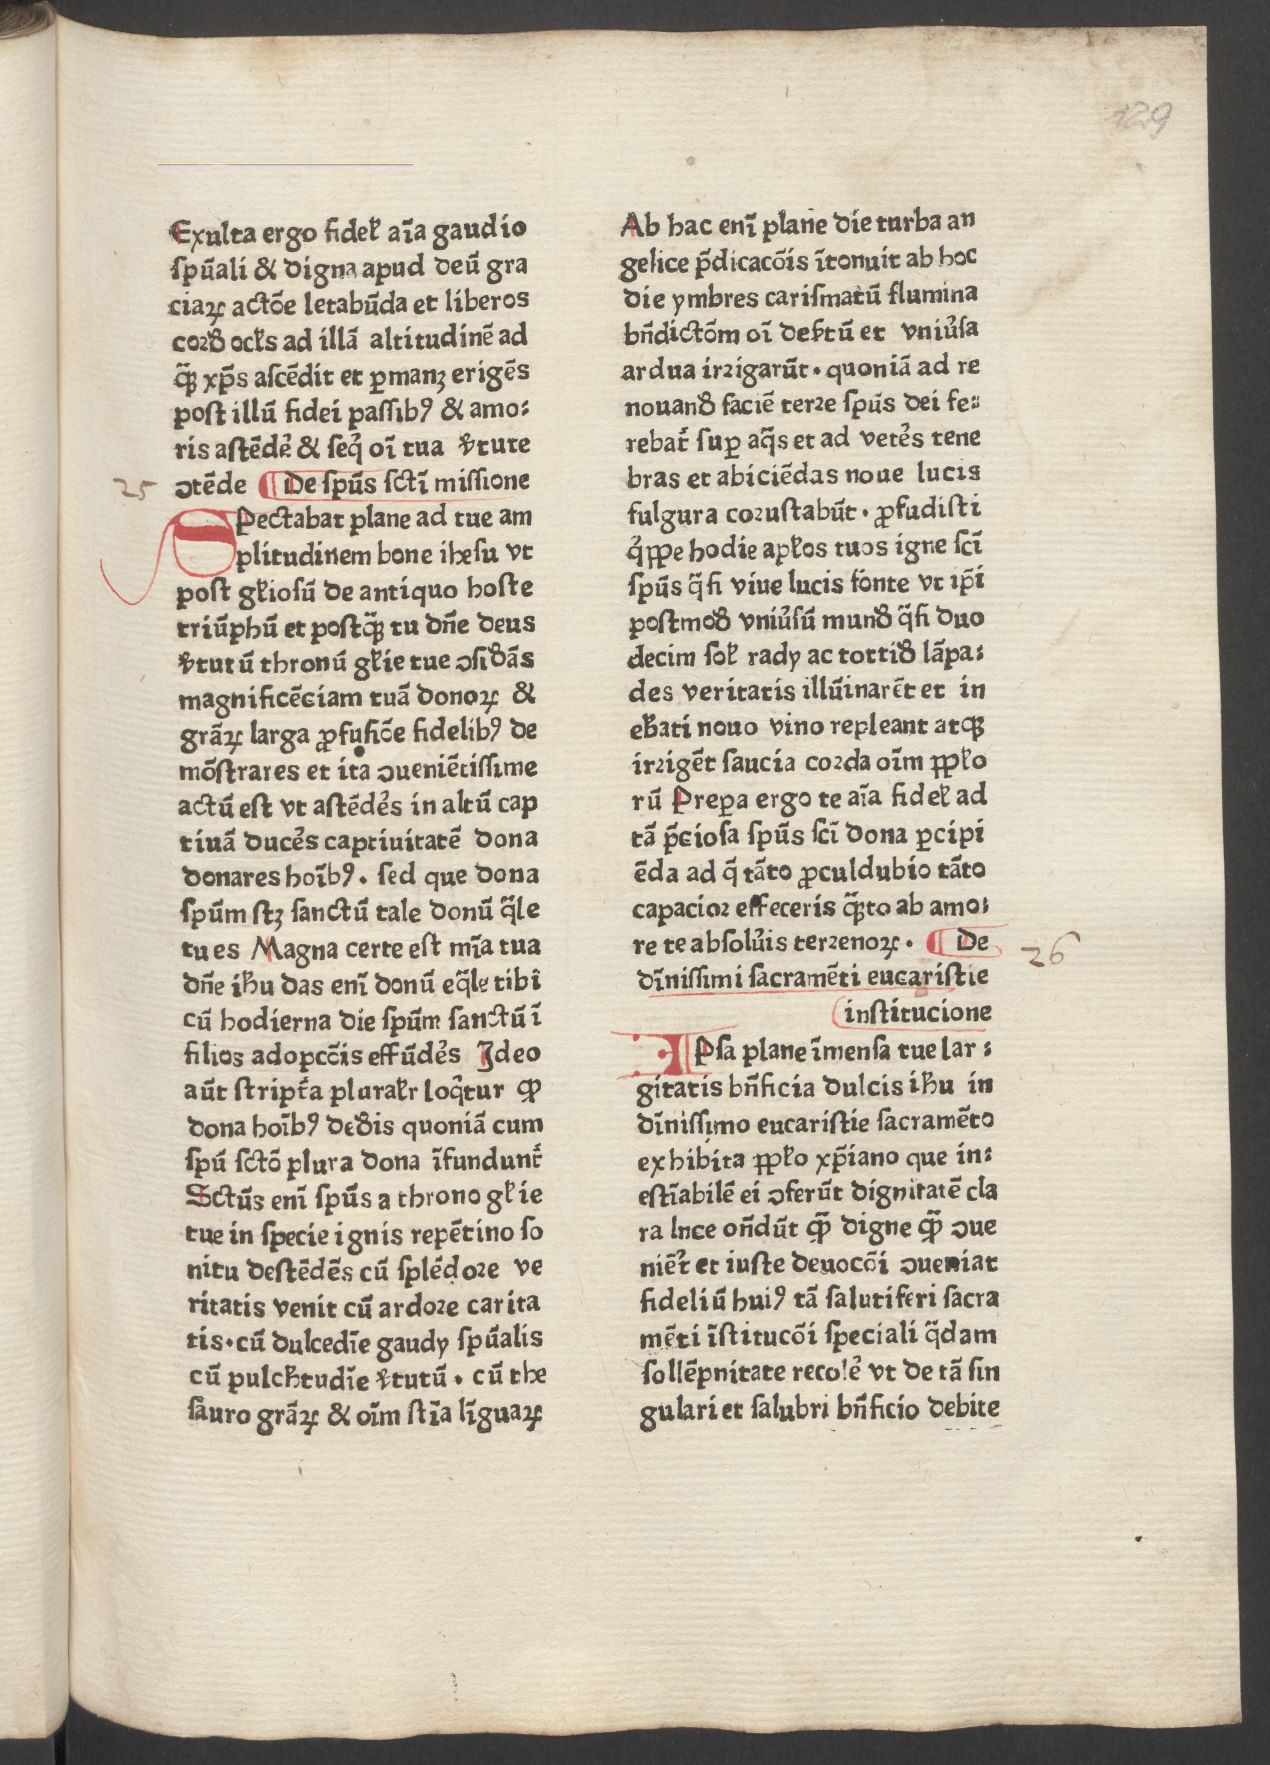 129
Exulta ergo fidel̄ aīa gaudio
spūali & digna apud deū gra
ciaꝝ actōe letabūda et liberos
cordꝭ ocłs ad illā altitudinē ad
qꝫ xp̄s ascēdit et ꝑmanꝫ erigēs
post illū fidei passibꝰ & amo⸗
ris astēdē & seq̄ oī tua v̄tute
25 ↄtēde ¶ De spūs sctī missione
SPectabat plane ad tue am
plitudinem bone ihesu vt
post gł̄iosū de antiquo hoste
triūphū et postqꝫ tu dn̄e deus
v̄tutū thronū gł̄ie tue ↄsidꝭās
magnificēciam tuā donoꝝ &
grāꝝ larga ꝓfusiōe fidelibꝰ de
mōstrares et ita ↄueniētissime
actū est vt astēdēs in altū cap
tiuā ducēs captiuitatē dona
donares hoībꝰ. sed que dona
spūm stꝫ sanctū tale donū q̄le
tu es Magna certe est mīa tua
dn̄e ihū das enī donū eq̄le tibi
cū hodierna die spūm sanctū ī
filios adopcōis effūdēs Ideo
aūt stript̄a plurał̄r loq̄tur ꝙ
dona hoībꝰ dedꝭis quoniā cum
spū sctō plura dona īfundunt̄
Sctūs enī spūs a throno gł̄ie
tue in specie ignis repētino so
nitu destēdēs cū splēdore ve
ritatis venit cū ardore carita
tis. cū dulcedīe gaudy spūalis
cū pulch̄tudīe v̄tutū. cū the
sauro grāꝝ & oīm stīa līguaꝝ
Ab hac enī plane die turba an
gelice p̄dicacōis ītonuit ab hoc
die ymbres carismatū flumina
bn̄dictōm oī defꝭtū et vniūsa
ardua irrigarūt. quoniā ad re
nouandꝭ faciē terre spūs dei fe⸗
rebat̄ suꝑ aq̄s et ad vetēs tene
bras et abiciēdas noue lucis
fulgura corustabūt. ꝓfudisti
q̄ppe hodie apł̄os tuos igne scī
spūs q̄si viue lucis fonte vt ip̄i
postmodꝭ vniūsū mundꝭ q̄si duo
decim soł̄ rady ac tottidꝭ lāpa⸗
des veritatis illūinarēt et in
eb̄ati nouo vino repleant atqꝫ
irrigēt saucia corda oīm ppł̄o
rū Preꝑa ergo te aīa fidel̄ ad
tā p̄ciosa spūs scī dona ꝑcipi
ēda ad q̄ tāto ꝓculdubio tāto
capacior effeceris qꝫto ab amo⸗
re te absolūis terrenoꝝ. ¶ De 26
dīnissimi sacramēti eucaristie
institucione
IPsa plane īmensa tue lar⸗
gitatis bn̄ficia dulcis ihū in
dīnissimo eucaristie sacramēto
exhibita ppł̄o xp̄iano que in⸗
estīabilē ei ↄferūt dignitatē cla
ra lnce on̄dūt ꝙ̄ digne ꝙ̄ ↄue
niēt̄ et iuste deuocōi ↄueniat
fideliū huiꝰ tā salutiferi sacra
mēti īstitucōi speciali q̄dam
sollēpnitate recolē vt de tā sin
gulari et salubri bn̄ficio debite